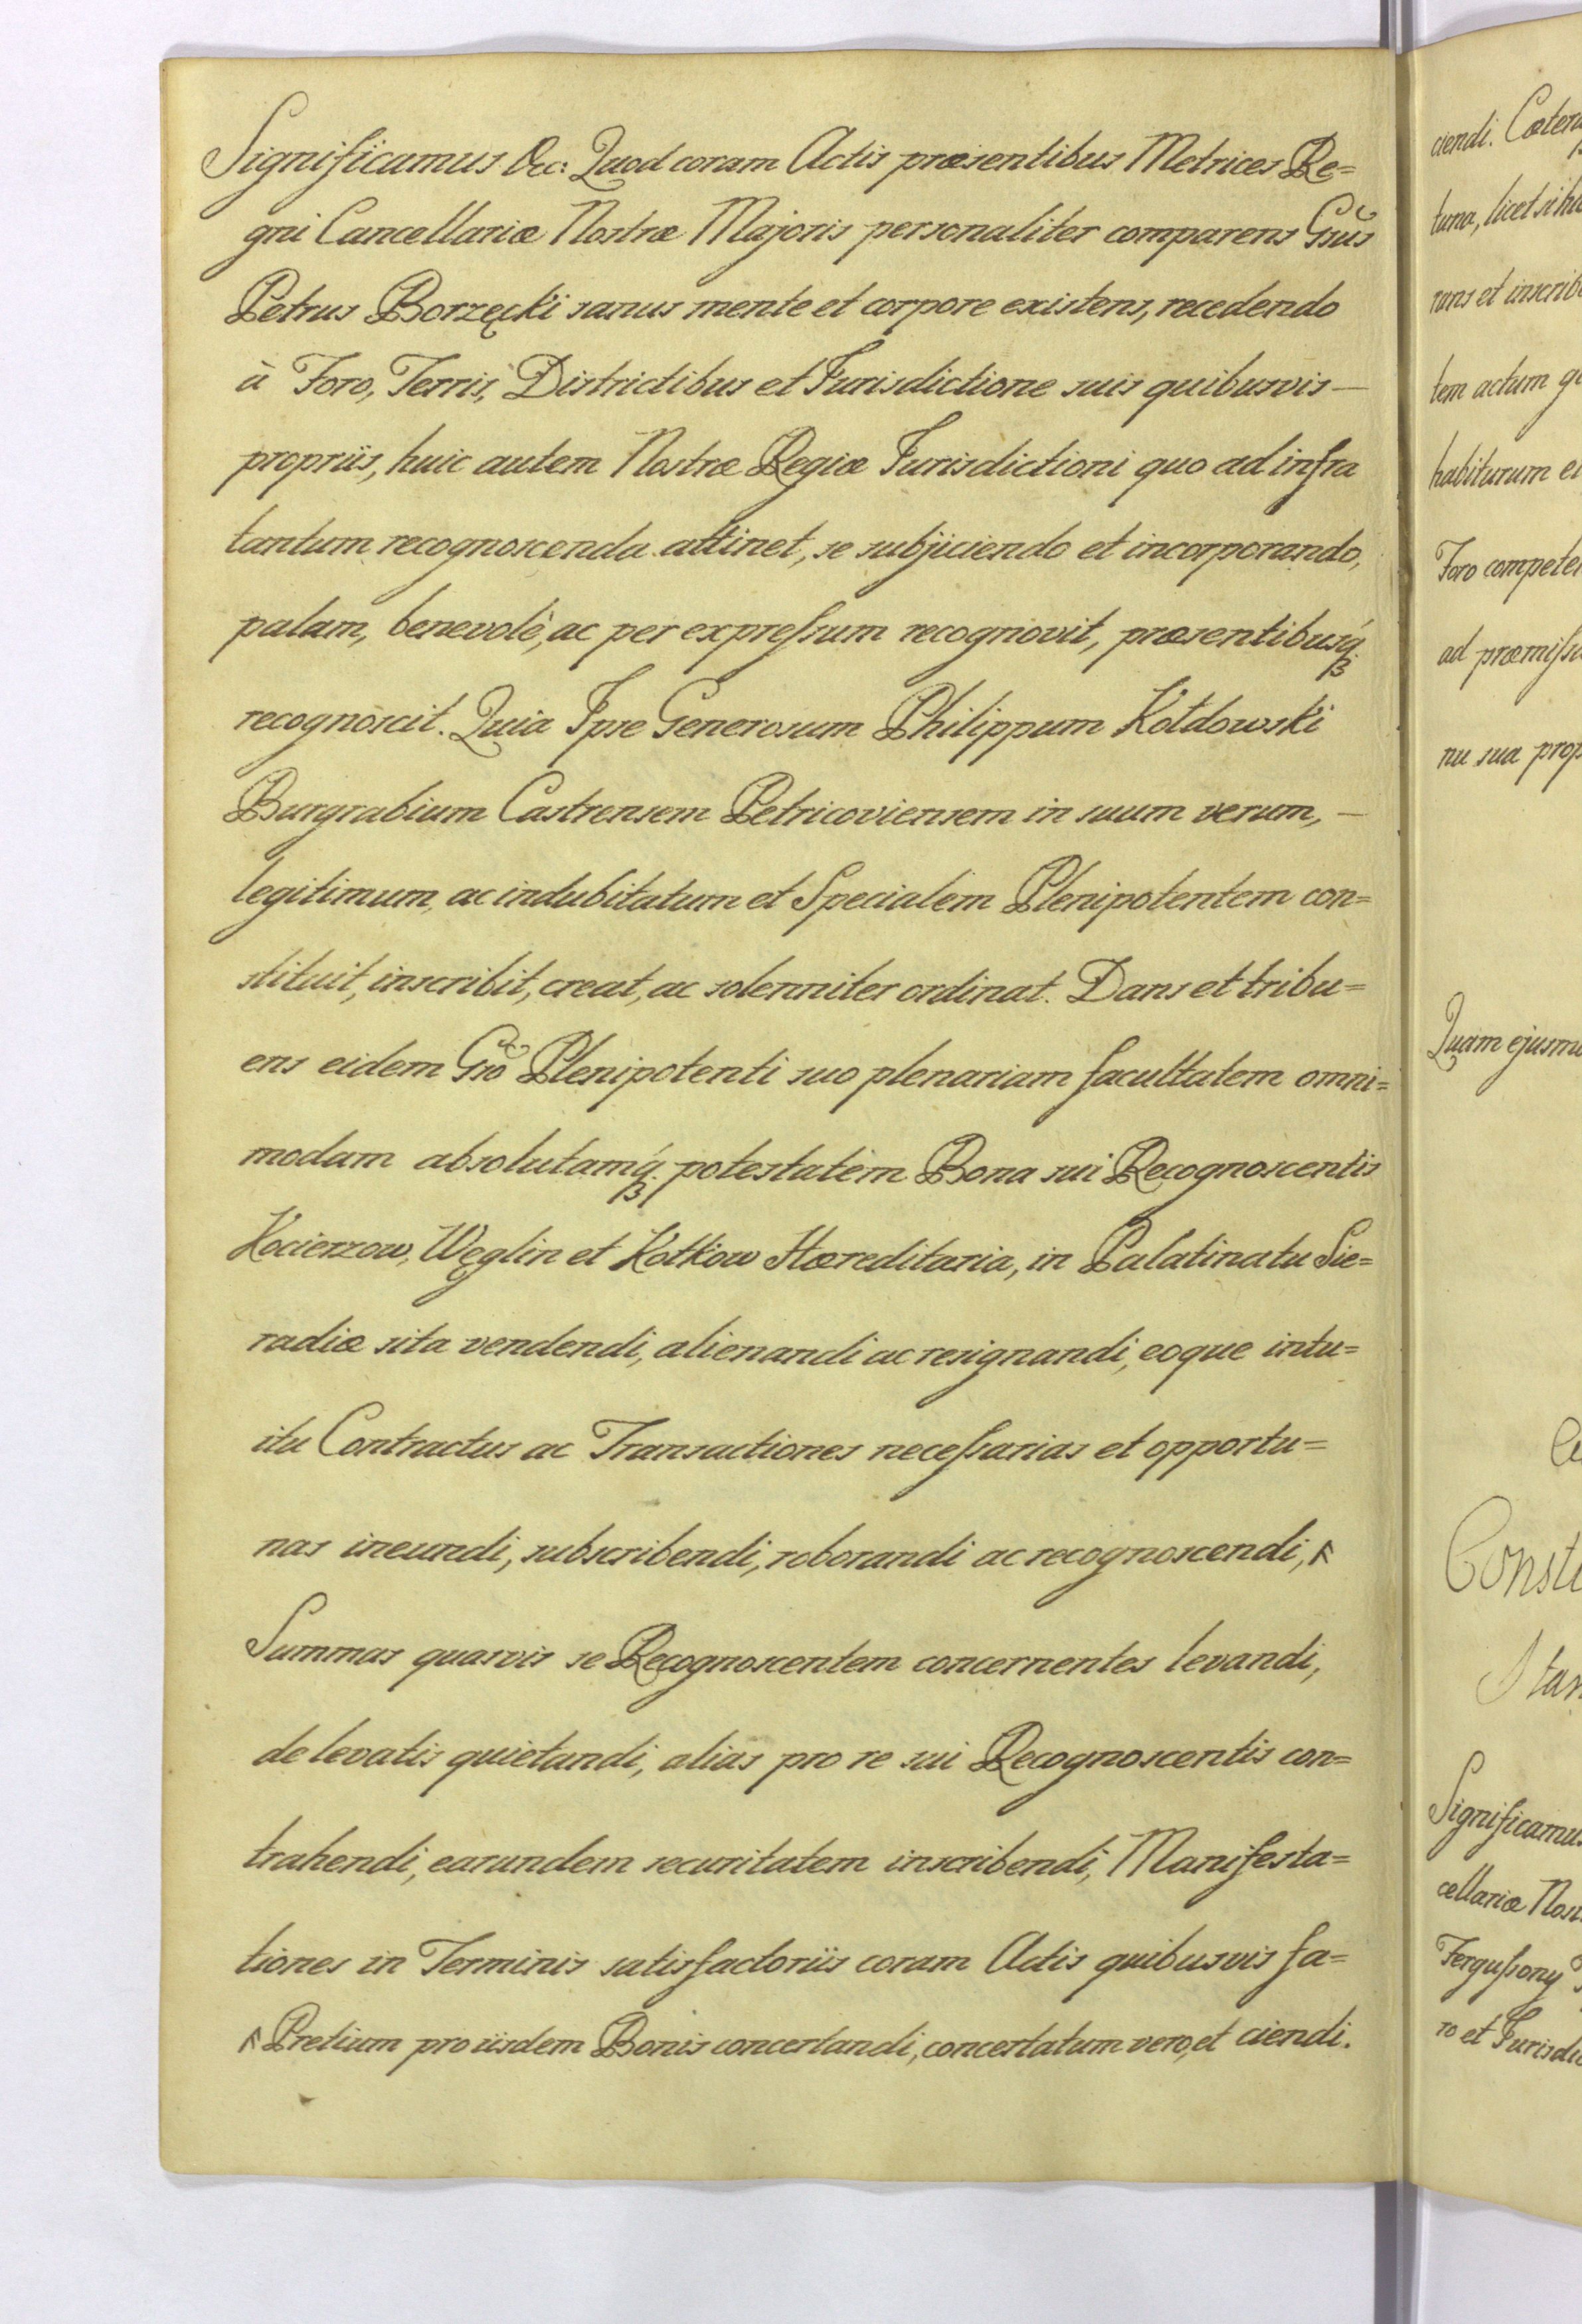 Significamus &c: Quod coram Actis præsentibus Metrices Re=
gni Cancellariæ Nostræ Majoris personaliter comparens Gsus
Petrus Borzęcki sanus mente et corpore existens, recedendo
à Foro, Terris, Districtibus et Jurisdictione suis quibusvis —
propriis, huic autem Nostræ Regiæ Jurisdictioni quo ad infra
tantum recognoscenda attinet, se subjiciendo et incorporando,
palam, benevolè, ac per expreſsum recognovit, præsentibusq́
recognoscit. Quia Ipse Generosum Philippum Kołdowski
Burgrabium Castrensem Petricoviensem in suum verum, —
legitimum, ac indubitatum et Specialem Plenipotentem con=
stituit, inscribit, creat, ac solenniter ordinat. Dans et tribu=
ens eidem Gso Plenipotenti suo plenariam facultatem omni=
modam absolutamq́ potestatem Bona sui Recognoscentis
Kocierzow, Węglin et Kotkow Hæreditaria, in Palatinatu Sie=
radiæ sita vendendi, alienandi ac resignandi, eoque intu=
itu Contractus ac Transactiones neceſsarias et opportu=
nas ineundi, subscribendi, roborandi ac recognoscendi,
Summas quasvis se Recognoscentem concernentes levandi,
de levatis quietandi, alias pro re sui Recognoscentis con=
trahendi, earundem securitatem inscribendi, Manifesta=
tiones in Terminis satisfactoriis coram Actis quibusvis fa=
Pretium pro iisdem Bonis concertandi, concertatum vero, et ciendi.
ciendi.
tuna, licet si
rans et
tem actum
habiturum
Foro
ad
nu sua
Quam
Significamus
cellariæ
Ferguſsony
ro et